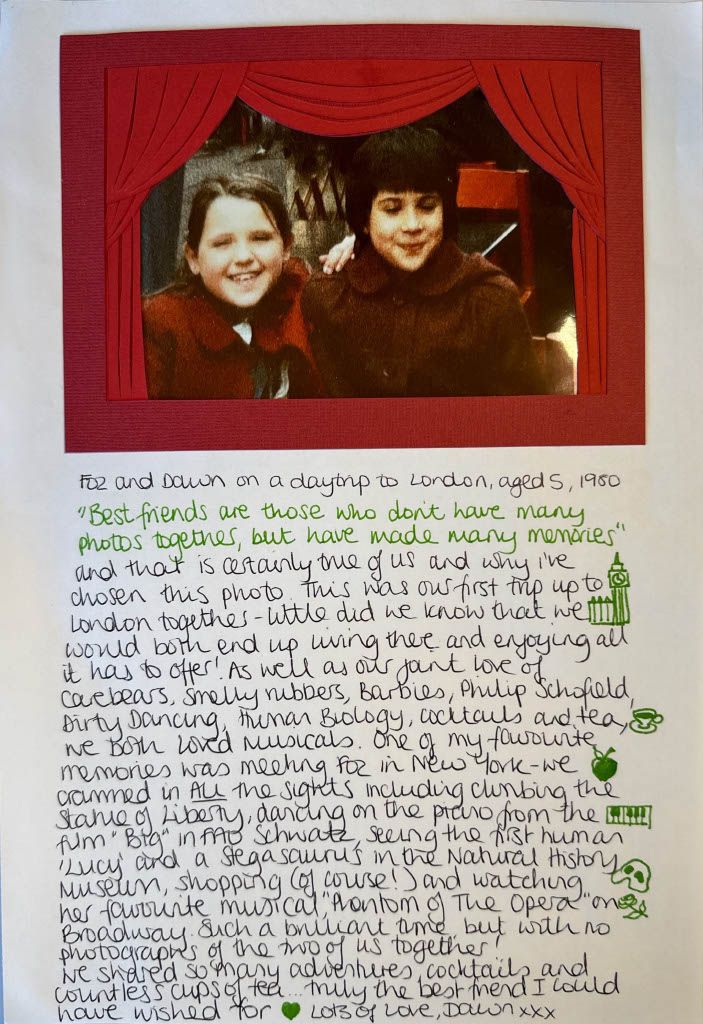 Foz and Dawn on a daytrip to London, aged 5, 1980
"Best friends are those who don't have many
photos together, but have made many memories"
and that is certainly true of us and why i've
chosen this photo. This was our first trip up to
London together - little did we know that we
would both end up living there and enjoying all
it has to offer! As well as our joint love of
Carebears, smelly rubbers, Barbies, Philip Schofield,
Dirty Dancing, Human Biology, cocktails and tea,
we both loved musicals. One of my favourite
memories was meeting Foz in New York - we
crammed in ALL the sights including climbing the
Statue of Liberty, dancing on the piano from the
film "Big" in FAO Schwatz, seeing the first human
'Lucy' and a Stegasaurus in the Natural History
Museum, shopping (of course!) and watching
her favourite musical, "Phantom of The Opera" on
Broadway. Such a brilliant time, but with no
photographs of the two of us together!
We shared so many adventures, cocktails and
countless cups of tea... truly the best friend I could
have wished for ♥ Lots of Love, Dawn xxx